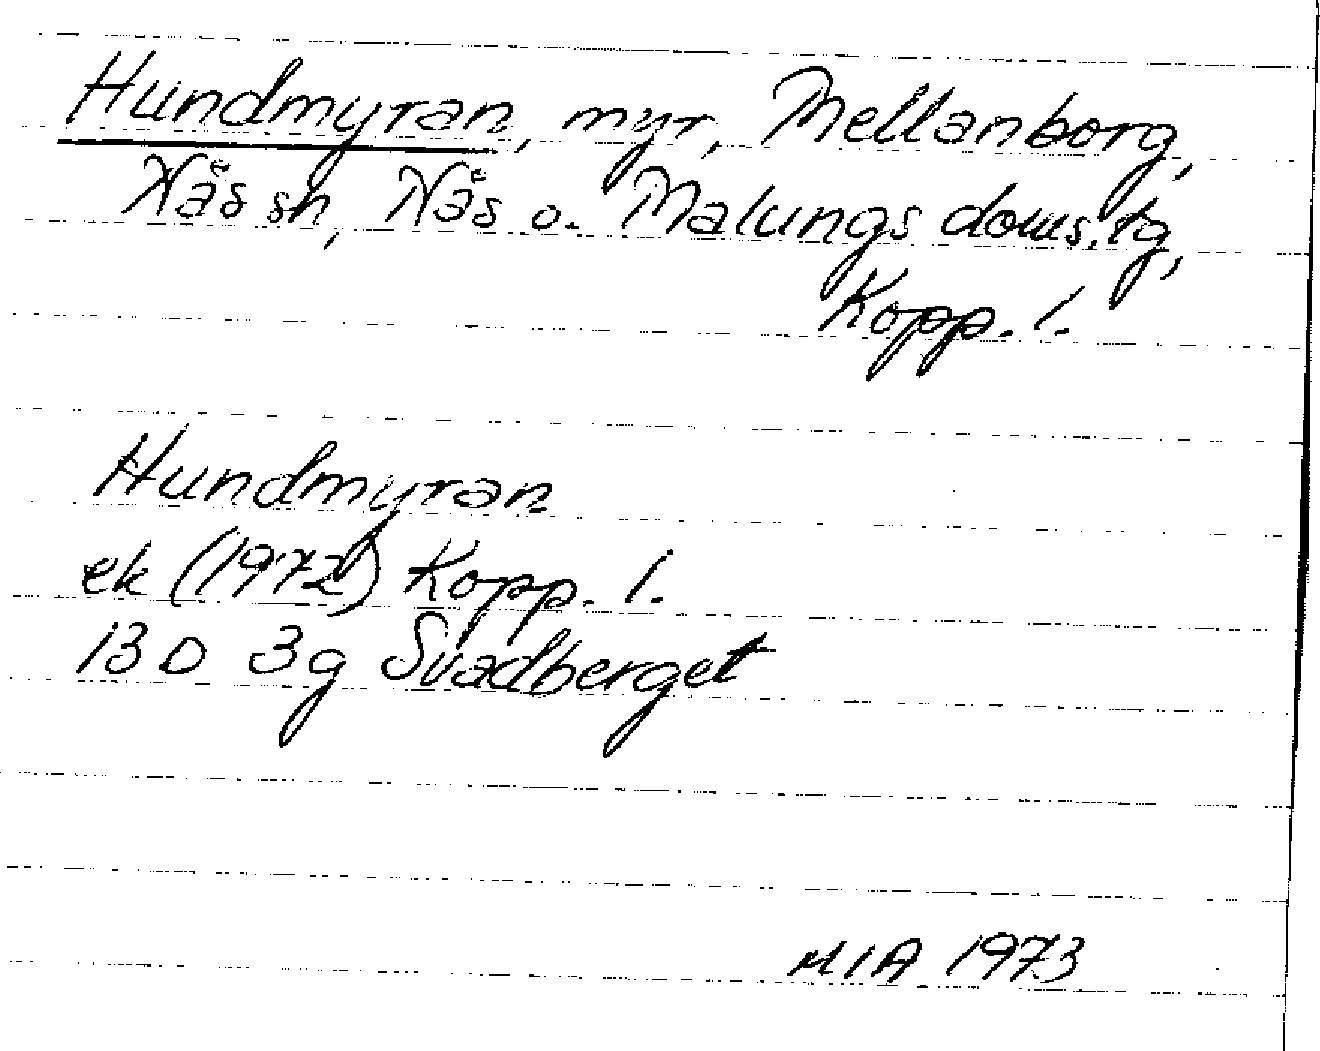 Hundmyran, myr, Mellanborg,
Nås sn, Nås o. Malungs doms.tg,
Kopp. l.
Hundmyran
ek (1972) Kopp. l.
13 D 3g Svadberget
MIA 1973